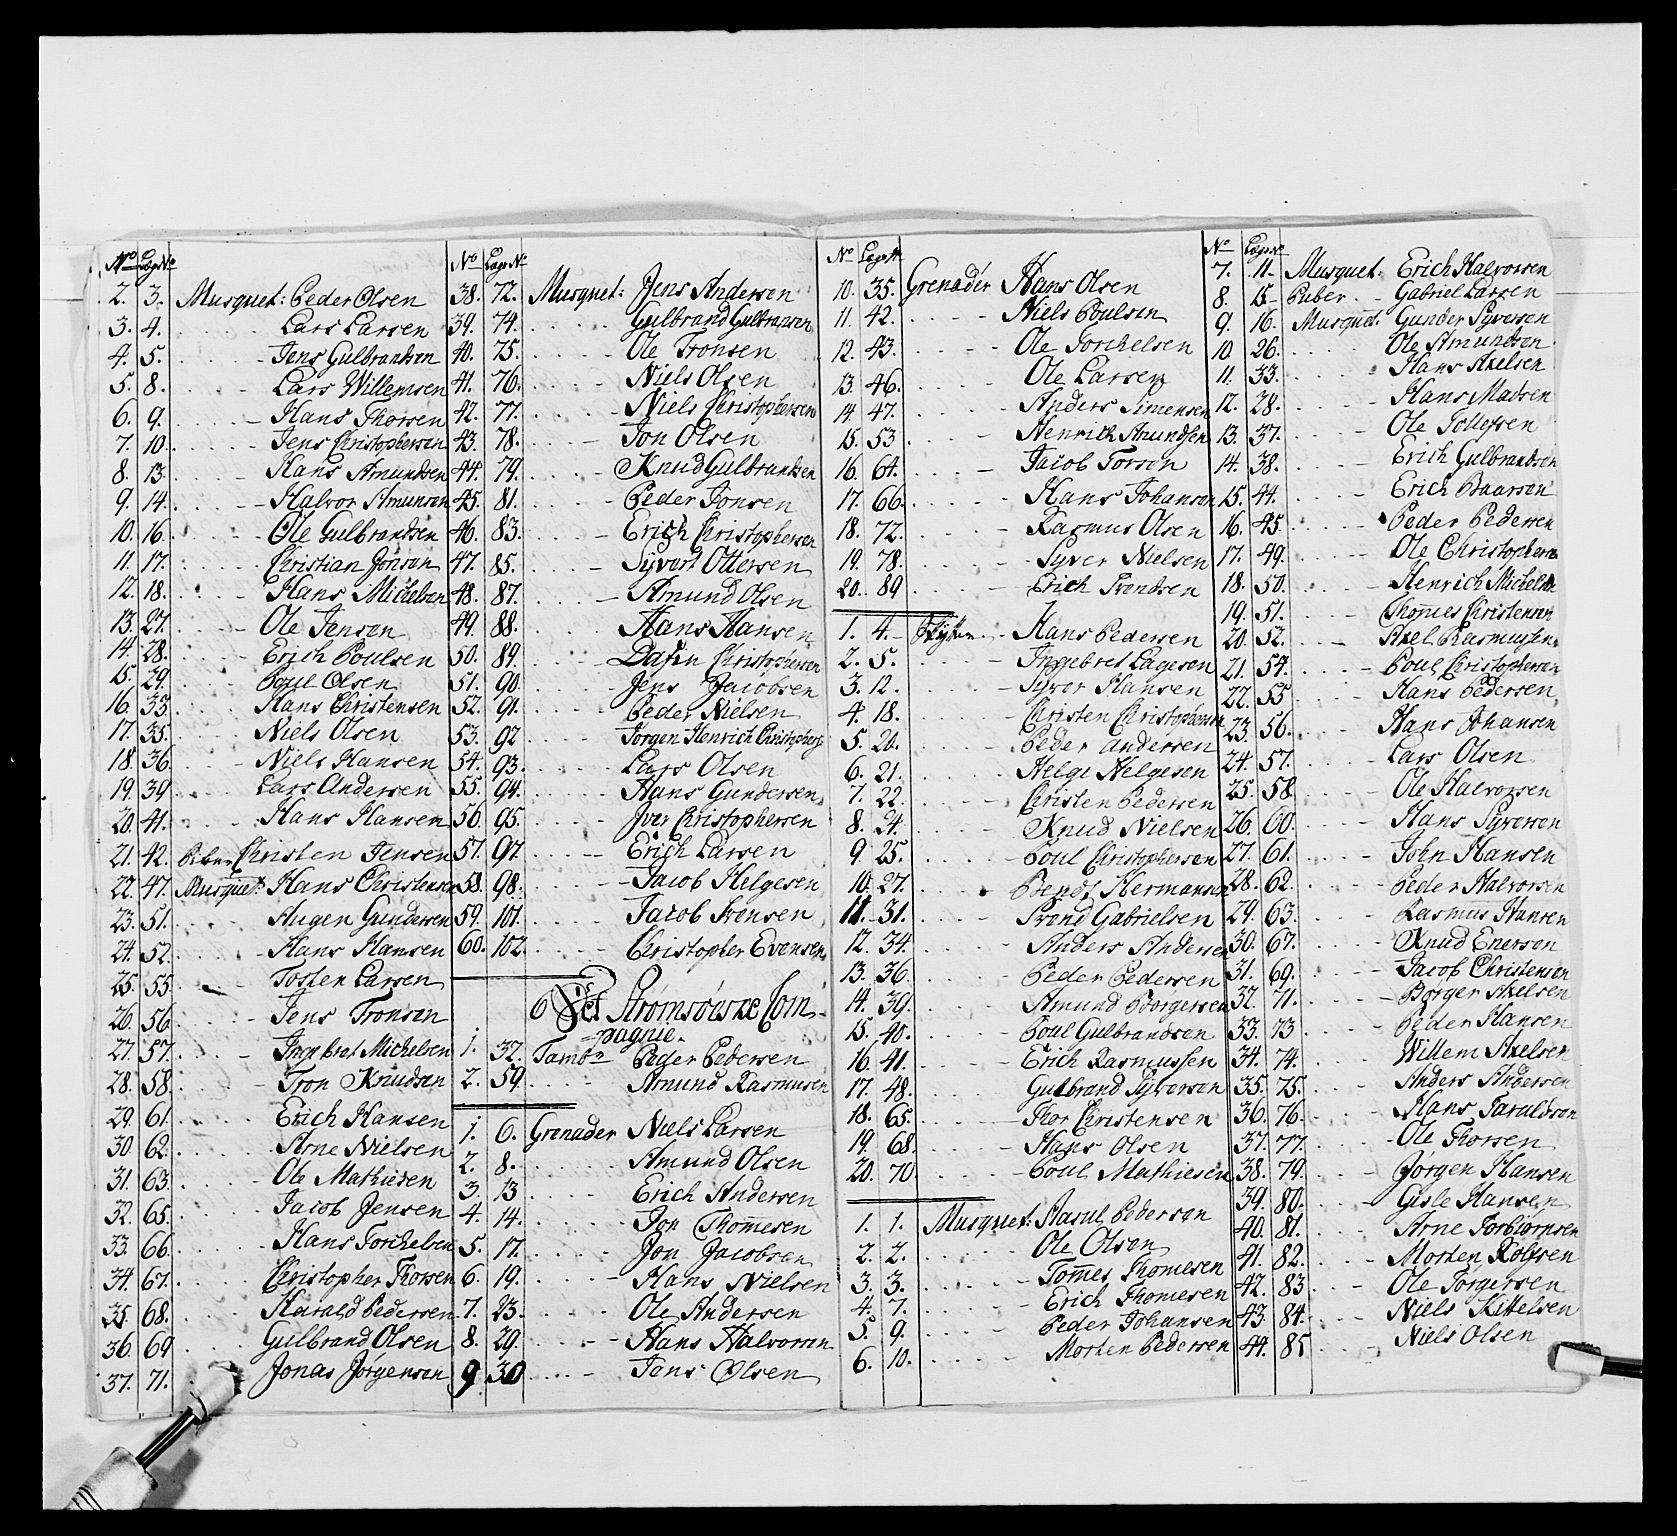 No Lægs No
2. 3. Musquet: Peder Olsen
3. 4. Lars Larsen
4. 5. Jens Gulbrandsen
5. 8. Lars Willemsen
6. 9. Hans Thorsen
7. 10. Jens Christophersen
8. 13. Hans Amundsen
9. 14. Halvor Amunsen
10. 16. Ole Gulbrandsen
11. 17. Christian Jonsen
12. 18. Hans Michelsen
13. 27. Ole Jensen
14. 28. Erich Poulsen
15. 29. Poul Olsen
16. 33. Hans Christensen
17. 35. Niels Olsen
18. 36. Niels Hansen
19. 39. Lars Andersen
20. 41. Hans Hansen
21. 42. Piber Christen Jensen
22. 47. Musquet: Hans Christensen
23. 51. Augen Gundersen
24. 52. Hans Hansen
25. 55. Tosten Larsen
26. 56. Jens Tronsen
27. 57. Ingebret Michelsen
28. 58. Tron Knudsen
29. 61. Erich Hansen
30. 62. Arne Nielsen
31. 63. Ole Mathiesen
32. 65. Jacob Jensen
33. 66. Hans Torchelsen
34. 67. Christopher Thorsen
35. 68. Harald Pedersen
36. 69. Gulbrand Olsen
37. 71. Jonas Jørgensen
No Lægs No
38. 72. Musquet: Jens Andersen
39. 74. Gulbrand Gulbransen
40. 75. Ole Tronsen
41. 76. Niels Olsen
42. 77. Niels Christophersen
43. 78. Jon Olsen
44. 79. Knud Gulbrandsen
45. 81. Peder Jonsen
46. 83. Erich Christophersen
47. 85. Syvert Ottersen
48. 87. Amund Olsen
49. 88. Hans Hansen
50. 89. Christophersen
51. 90. Jens Jacobsen
52. 91. Peder Nielsen
53. 92. Jørgen Henrich Christophers
54. 93. Lars Olsen
55. 94. Hans Gundersen
56. 95. Iver Christophersen
57. 97. Erich Larsen
58. 98. Jacob Helgesen
59. 101. Jacob Svensen
60. 102. Christopher Evensen
6 Det Strømsøiske Com-
pagnie.
1. 32. Tambr Peder Pedersen
2. 59. Amund Rasmusen
1. 6. Grenader Niels Larsen
2. 8. Amund Olsen
3. 13. Erich Andersen
4. 14. Jon Thomesen
5. 17. Jon Jacobsen
6. 19. Hans Nielsen
7. 23. Ole Andersen
8. 29. Hans Halvorsen
9. 30. Jens Olsen
No Lægs No
10. 35. Grenadér Hans Olsen
11. 42. Niels Poulsen
12. 43. Ole Torchelsen
13. 46. Ole Larsen
14. 47. Anders Simensen
15. 53. Henrich Amundsen
16. 64. Jacob Torsen
17. 66. Hans Johansen
18. 72. Rasmus Olsen
19. 78. Syver Nielsen
20. 89. Erich Trondsen
1. 4. Hans Pedersen
2. 5. Ingebret Lagesen
3. 12. Syver Hansen
4. 18. Christen Christophersen
5. 20. Peder Andersen
6. 21. Helge Helgesen
7. 22. Christen Pedersen
8. 24. Knud Nielsen
9. 25. Poul Christophersen
10. 27. Bendt Hermansen
11. 31. Trond Gabrielsen
12. 34. Anders Andersen
13. 36. Peder Pedersen
14. 39. Amund Borgersen
15. 40. Poul Gulbrandsen
16. 41. Erich Rasmussen
17. 48. Gulbrand Syversen
18. 65. Thor Christensen
19. 68. Hans Olsen
20. 70. Poul Mathiesen
1. 1. Musquet: Pedersen
2. 2. Ole Olsen
3. 3. Tomes Thomesen
4. 7. Erich Thomesen
5. 9. Peder Johansen
6. 10. Morten Pedersen
No Lægs No
7. 11. Musquet: Erich Halvorsen
8. 15. Piber Gabriel Larsen
9. 16. Musquet. Gunder Syversen
10. 26. Ole Amundsen
11. 33. Hans Axelsen
12. 28. Hans Madsen
13. 37. Ole Tollefsen
14. 38. Erich Gulbrandsen
15. 44. Erich Baarsen
16. 45. Peder Pedersen
17. 49. Ole Christophersen
18. 50. Henrich Michelsen
19. 51. Thomes Christensen
20. 52. Axel Rasmussen
21. 54. Poul Christophersen
22. 55. Hans Pedersen
23. 56. Hans Johansen
24. 57. Lars Olsen
25. 58. Ole Halvorsen
26. 60. Hans Syversen
27. 61. John Hansen
28. 62. Peder Halvorsen
29. 63. Rasmus Hansen
30. 67. Knud Enersen
31. 69. Jacob Christensen
32. 71. Børger Axelsen
33. 73. Peder Hansen
34. 74. Willem Axelsen
35. 75. Anders Andersen
36. 76. Hans Taraldsen
37. 77. Ole Thorsen
38. 79. Jørgen Hansen
39. 80. Gisle Hansen
40. 81. Arne Torbiørnsen
41. 82. Morten Rolfsen
42. 83. Ole Torgersen
43. 84. Niels Kittelsen
44. 85. Niels Olsen